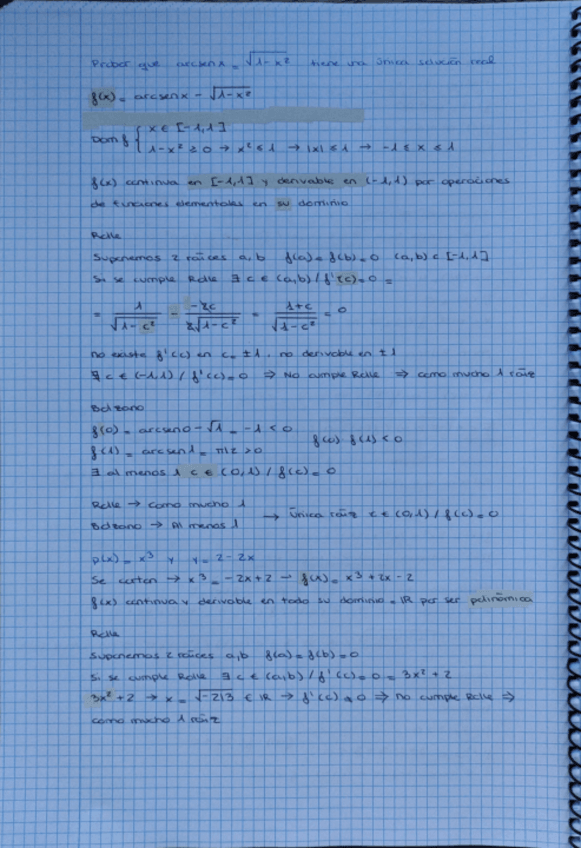 Probar que arcsenx = √1-x² tiene una única solución real
f(x) = arcsenx - √1-x²
Dom f { x ∈ [-1,1]
1-x² ≥ 0 → x² ≤ 1 → |x| ≤ 1 → -1 ≤ x ≤ 1
f(x) continua en [-1,1] y derivable en (-1,1) por operaciones
de funciones elementales en su dominio
Rolle
Suponemos 2 raíces a,b f(a) = f(b) = 0 (a,b) ⊂ [-1,1]
Si se cumple Rolle ∃ c ∈ (a,b) / f'(c) = 0 =
= 1/√1-c² - -2c/2√1-c² = 1+c/√1-c² = 0
no existe f'(c) en c = ±1. no derivable en ±1
∄ c ∈ (-1,1) / f'(c) = 0 ⇒ No cumple Rolle ⇒ como mucho 1 raíz
Bolzano
f(0) = arcsen0 - √1 = -1 < 0
f(1) = arcsen1 = π/2 > 0 f(0) · f(1) < 0
∃ al menos 1 c ∈ (0,1) / f(c) = 0
Rolle → como mucho 1
Bolzano → Al menos 1 → Única raíz c ∈ (0,1) / f(c) = 0
p(x) = x³ y y = 2-2x
Se cortan → x³ = -2x+2 → f(x) = x³+2x-2
f(x) continua y derivable en todo su dominio = IR por ser polinómica
Rolle
Suponemos 2 raíces a,b f(a) = f(b) = 0
Si se cumple Rolle ∃ c ∈ (a,b) / f'(c) = 0 = 3x²+2
3x²+2 → x = √-2/3 ∉ IR → f'(c) ≠ 0 ⇒ No cumple Rolle ⇒
como mucho 1 raíz